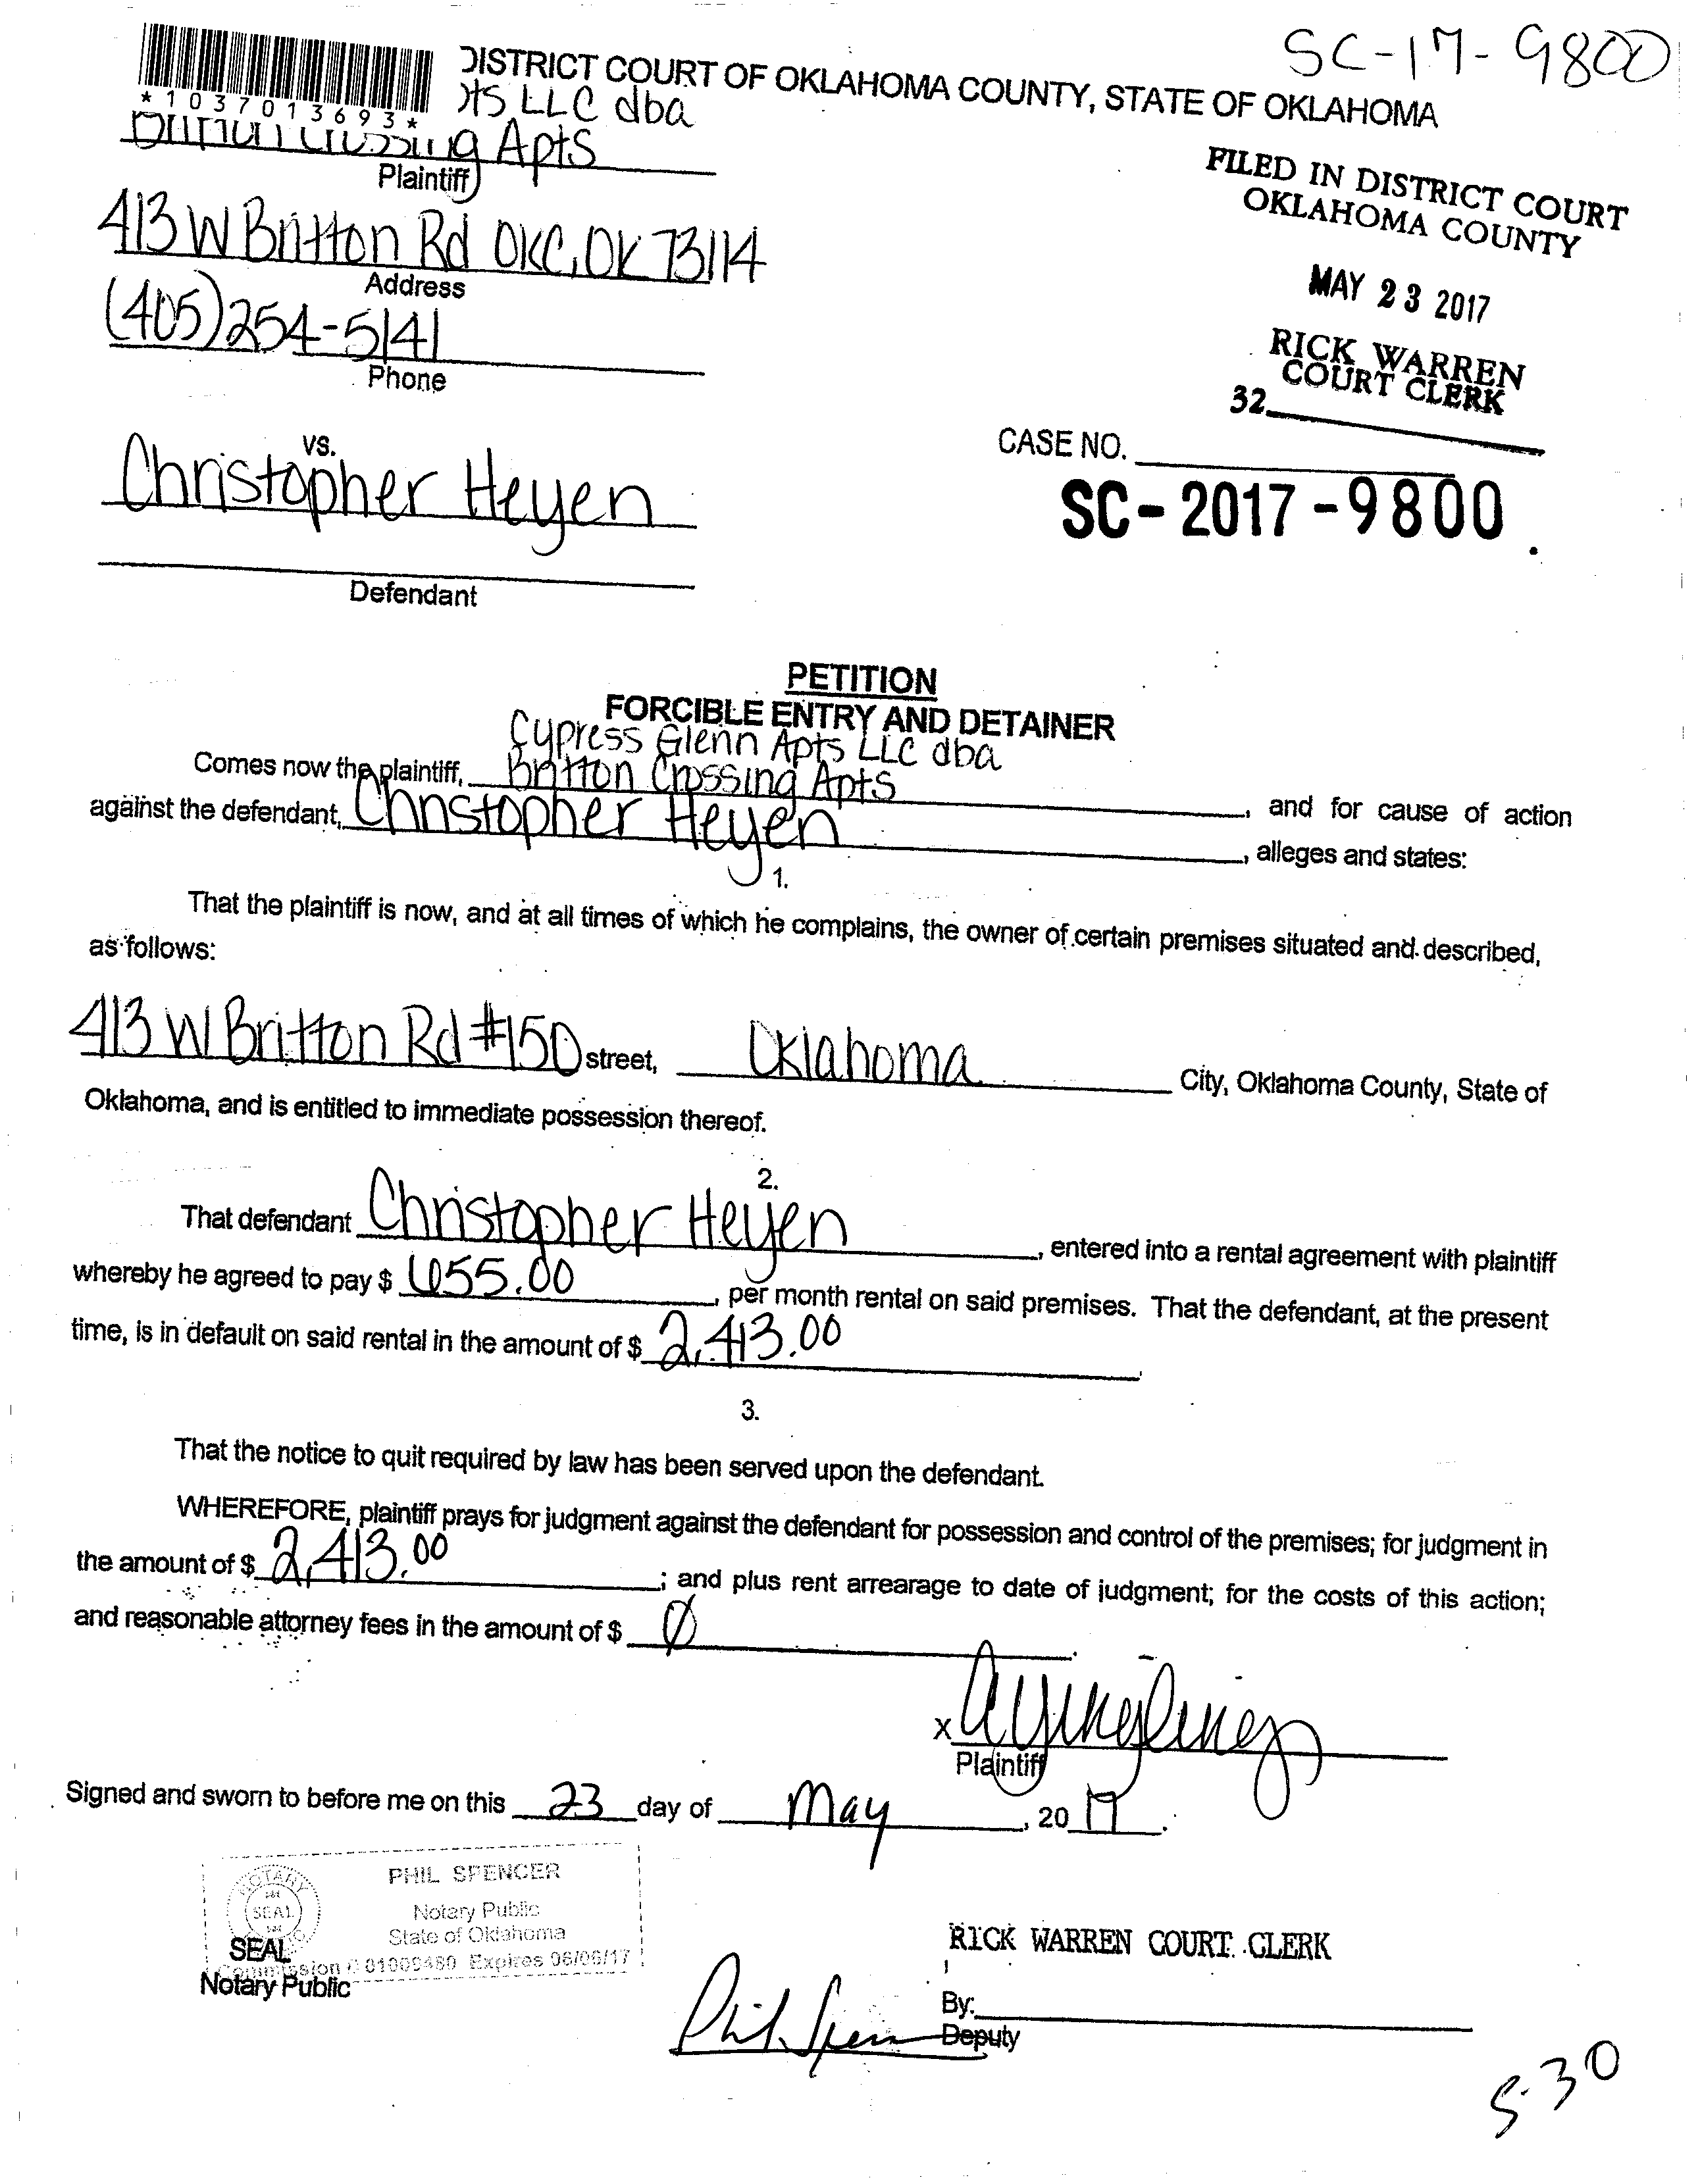 SC-17-9800
DISTRICT COURT OF OKLAHOMA COUNTY, STATE OF OKLAHOMA
*1037013693*
LLC dba
Britton Crossing Apts
Plaintiff
FILED IN DISTRICT COURT
OKLAHOMA COUNTY
413 W Britton Rd OKC, OK 73114
Address
MAY 23 2017
(405)254-5141
Phone
RICK WARREN
COURT CLERK
32
vs.
CASE NO.
Christopher Heyen
SC-2017-9800
Defendant
PETITION
FORCIBLE ENTRY AND DETAINER
Cypress Glenn Apts LLC dba
Comes now the plaintiff, Britton Crossing Apts, and for cause of action
against the defendant, Christopher Heyen, alleges and states:
1.
That the plaintiff is now, and at all times of which he complains, the owner of certain premises situated and described,
as follows:
413 W Britton Rd #150 street, Oklahoma City, Oklahoma County, State of
Oklahoma, and is entitled to immediate possession thereof.
2.
That defendant Christopher Heyen, entered into a rental agreement with plaintiff
whereby he agreed to pay $ 655.00, per month rental on said premises. That the defendant, at the present
time, is in default on said rental in the amount of $ 2,413.00.
3.
That the notice to quit required by law has been served upon the defendant.
WHEREFORE, plaintiff prays for judgment against the defendant for possession and control of the premises; for judgment in
the amount of $ 2,413.00; and plus rent arrearage to date of judgment; for the costs of this action;
and reasonable attorney fees in the amount of $ Ø.
x
Plaintiff
Signed and sworn to before me on this 23 day of May, 2017.
PHIL SPENCER
NOTARY
SEAL
Notary Public
State of Oklahoma
Commission # 01009480 Expires 06/06/17
SEAL
Notary Public
RICK WARREN COURT CLERK
By:
Phil Spencer
Deputy
5-30